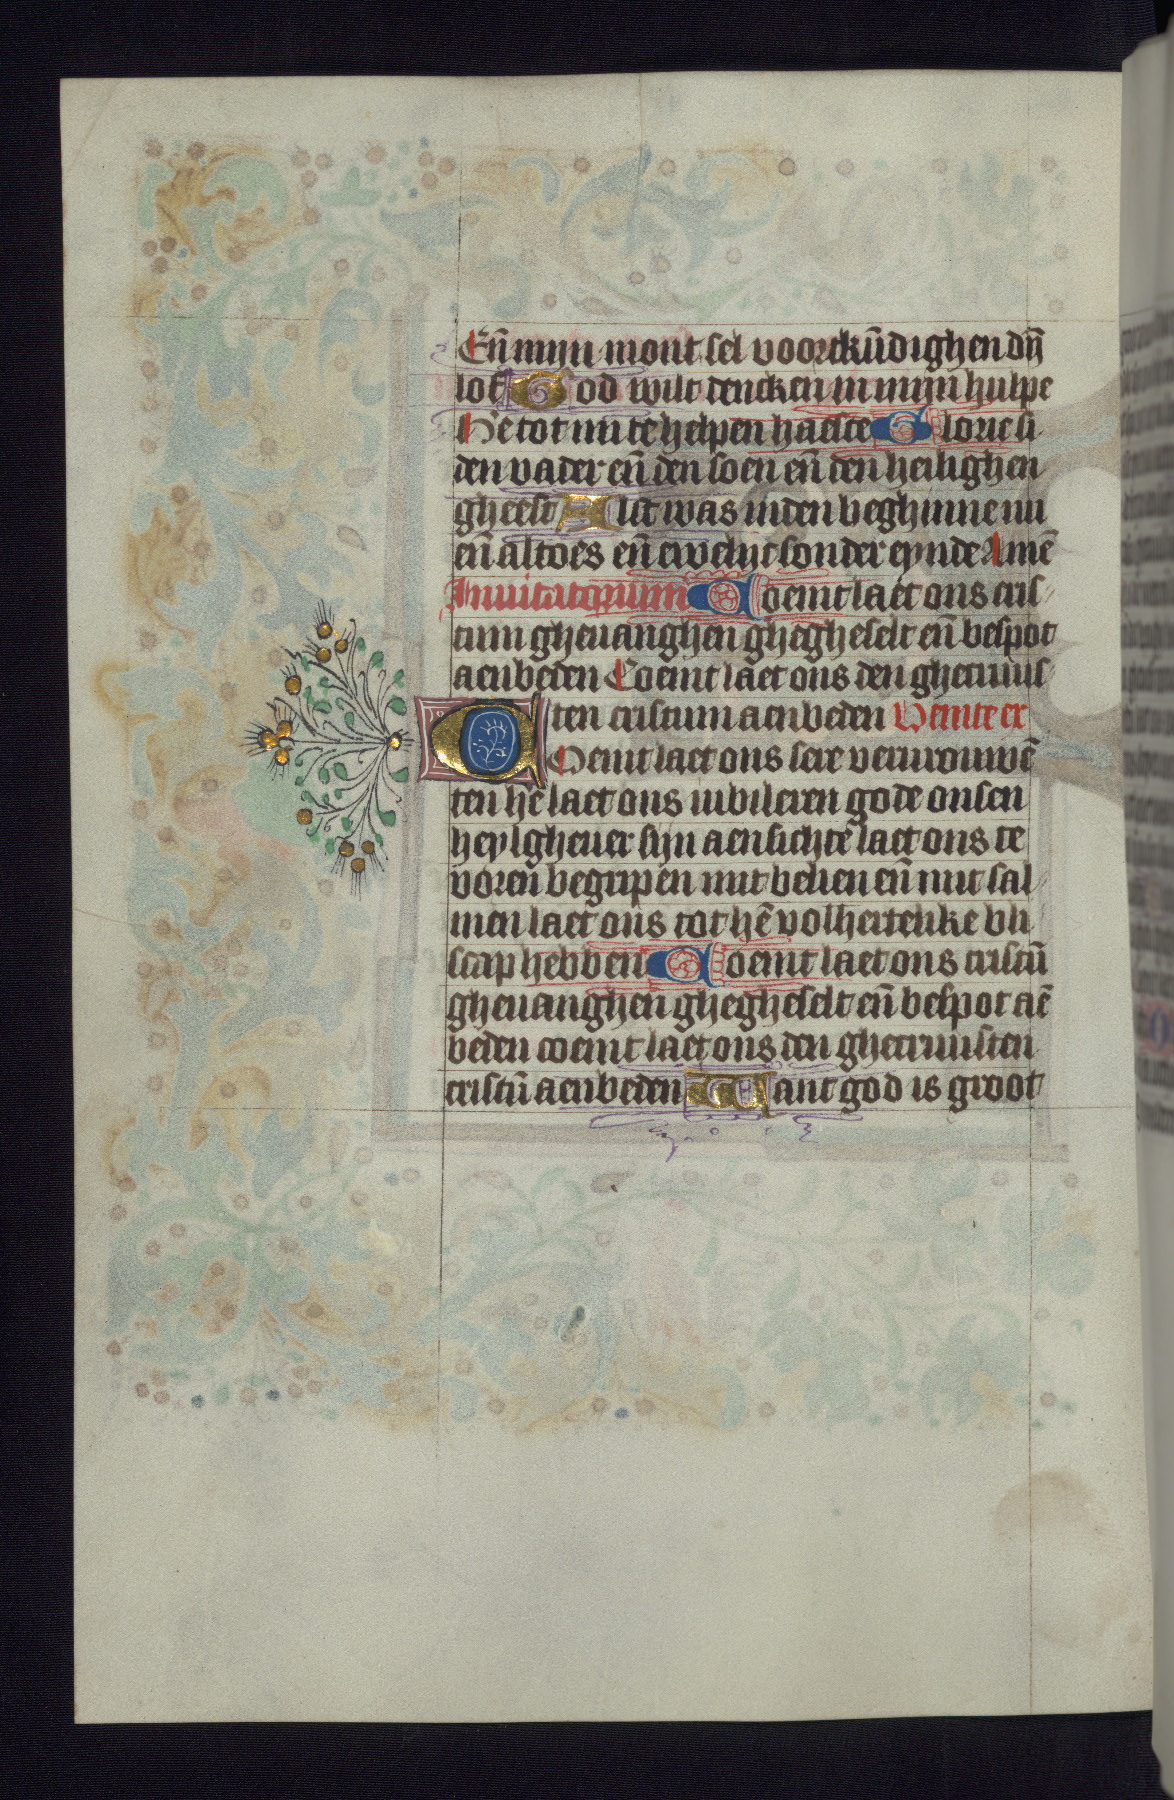 Eñ mijn mont sel voorckūdighen dyñ
lof God wilt dencken in mijn hulpe
He tot mi te helpen haeste Glorie si
den vader eñ den soen eñ den heilighen
gheest Alst was inden beghinne nu
eñ altoes eñ ewelijt sonder eynde Amē
Inuitatorium Coemt laet ons cris
tum gheuanghen ghegheselt eñ bespot
aenbeden Coemt laet ons den ghecruus
ten cristum aenbeden Venite ex
Coemt laet ons sere verurouwē
ten hē laet ons iubileren gode onsen
heylgheuer sijn aensichtē laet ons te
voren begripen mit belien eñ mit sal
men laet ons tot hē volhertelike bli
scap hebben Coemt laet ons cristū
gheuanghen ghegheselt eñ bespot aē
beden coemt laet ons den ghecruusten
cristū aenbeden Want god is groot